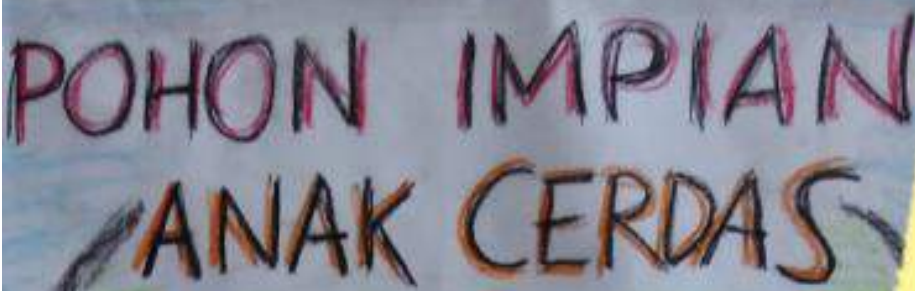 POHON IMPIAN
ANAK CERDAS